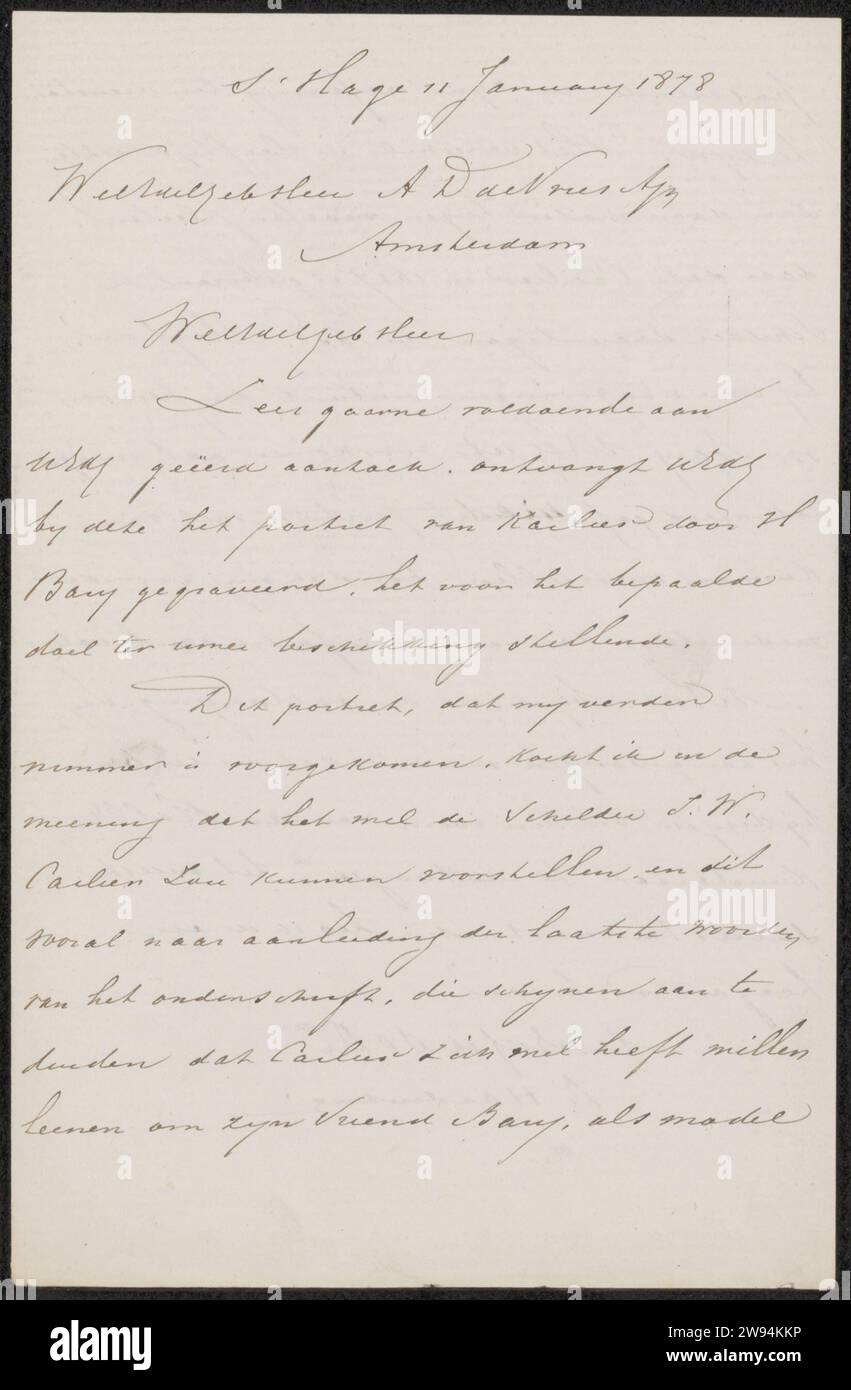 S' Hage 11 January 1878
WelEdelgeb Heer A D de Vries Azn
Amsterdam
WelEdelgeb Heer
Zeer gaarne voldoende aan
UEdg geëerd aanzoek. ontvangt UEdg
by deze het portret van Karlier door H
Bary gegraveerd, het voor het bepaalde
doel ter uwer beschikking stellende.
Dit portret, dat my verder
nimmer is voorgekomen. kocht ik in de
meening dat het wel de Schilder J. W.
Carlier zou kunnen voorstellen, en dit
vooral naar aanleiding der laatste woorden
van het onderschrift, die schynen aan te
duiden dat Carlier zich wel heeft willen
leenen om zyn vriend Bary, als model
alamy
Image ID: 2W94KKP
www.alamy.com